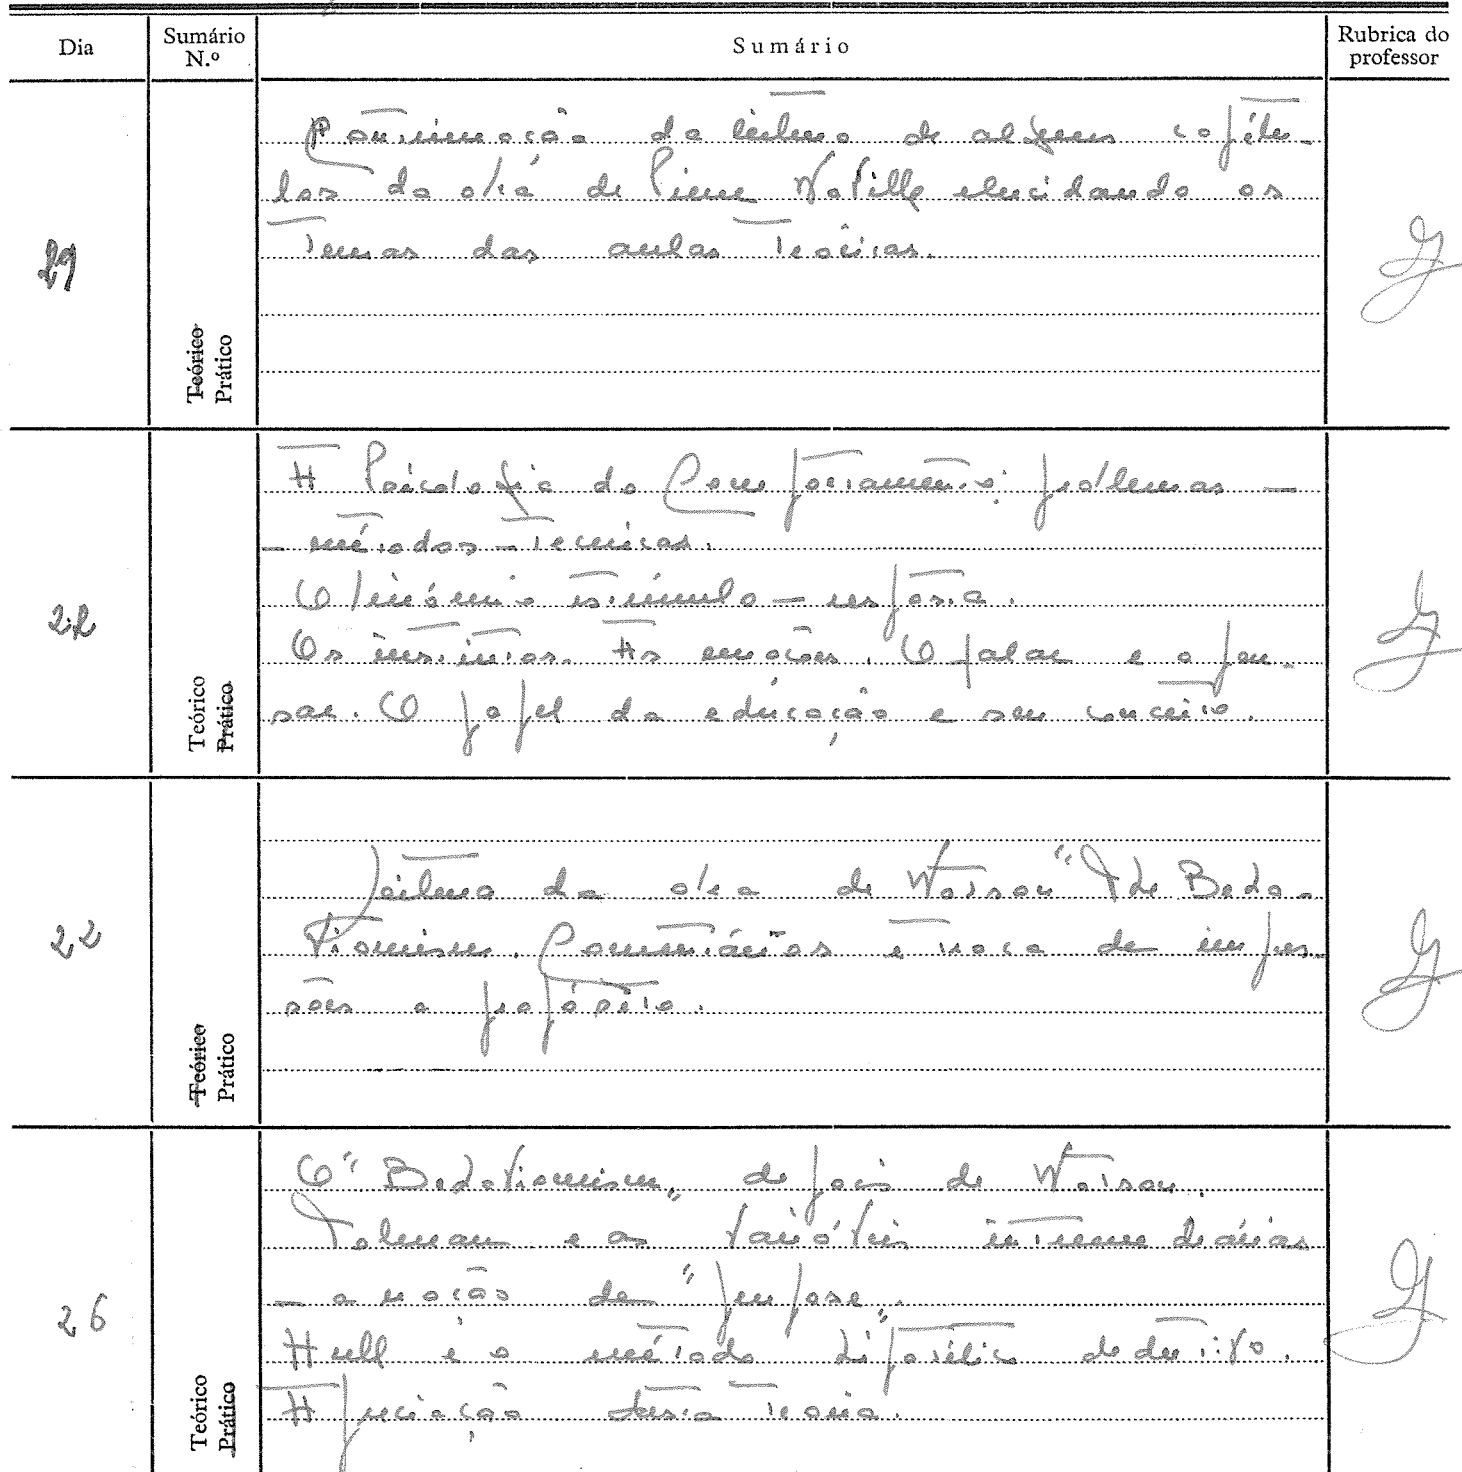 Dia
Sumário N.º
Sumário
Rubrica do professor
29
Teórico
Prático
Continuação da leitura de alguns capítu-
los da obra de Pierre Naville elucidando os
Temas das aulas Teóricas.
22
Teórico
Prático
A Psicologia do Comportamento; problemas –
– métodos – Técnicas.
O binómio estímulo – resposta.
Os instintos. As emoções. O falar e o pen-
sar. O papel da educação e seu conceito.
22
Teórico
Prático
Leitura da obra de Watson "The Beha-
viourism. Comentários e troca de impres-
sões a propósito.
26
Teórico
Prático
O "Behaviourism" depois de Watson.
Tolman e as variáveis intermediárias
– a noção de "purpose".
Hull e o método hipotético dedutivo.
Apreciação desta Teoria.